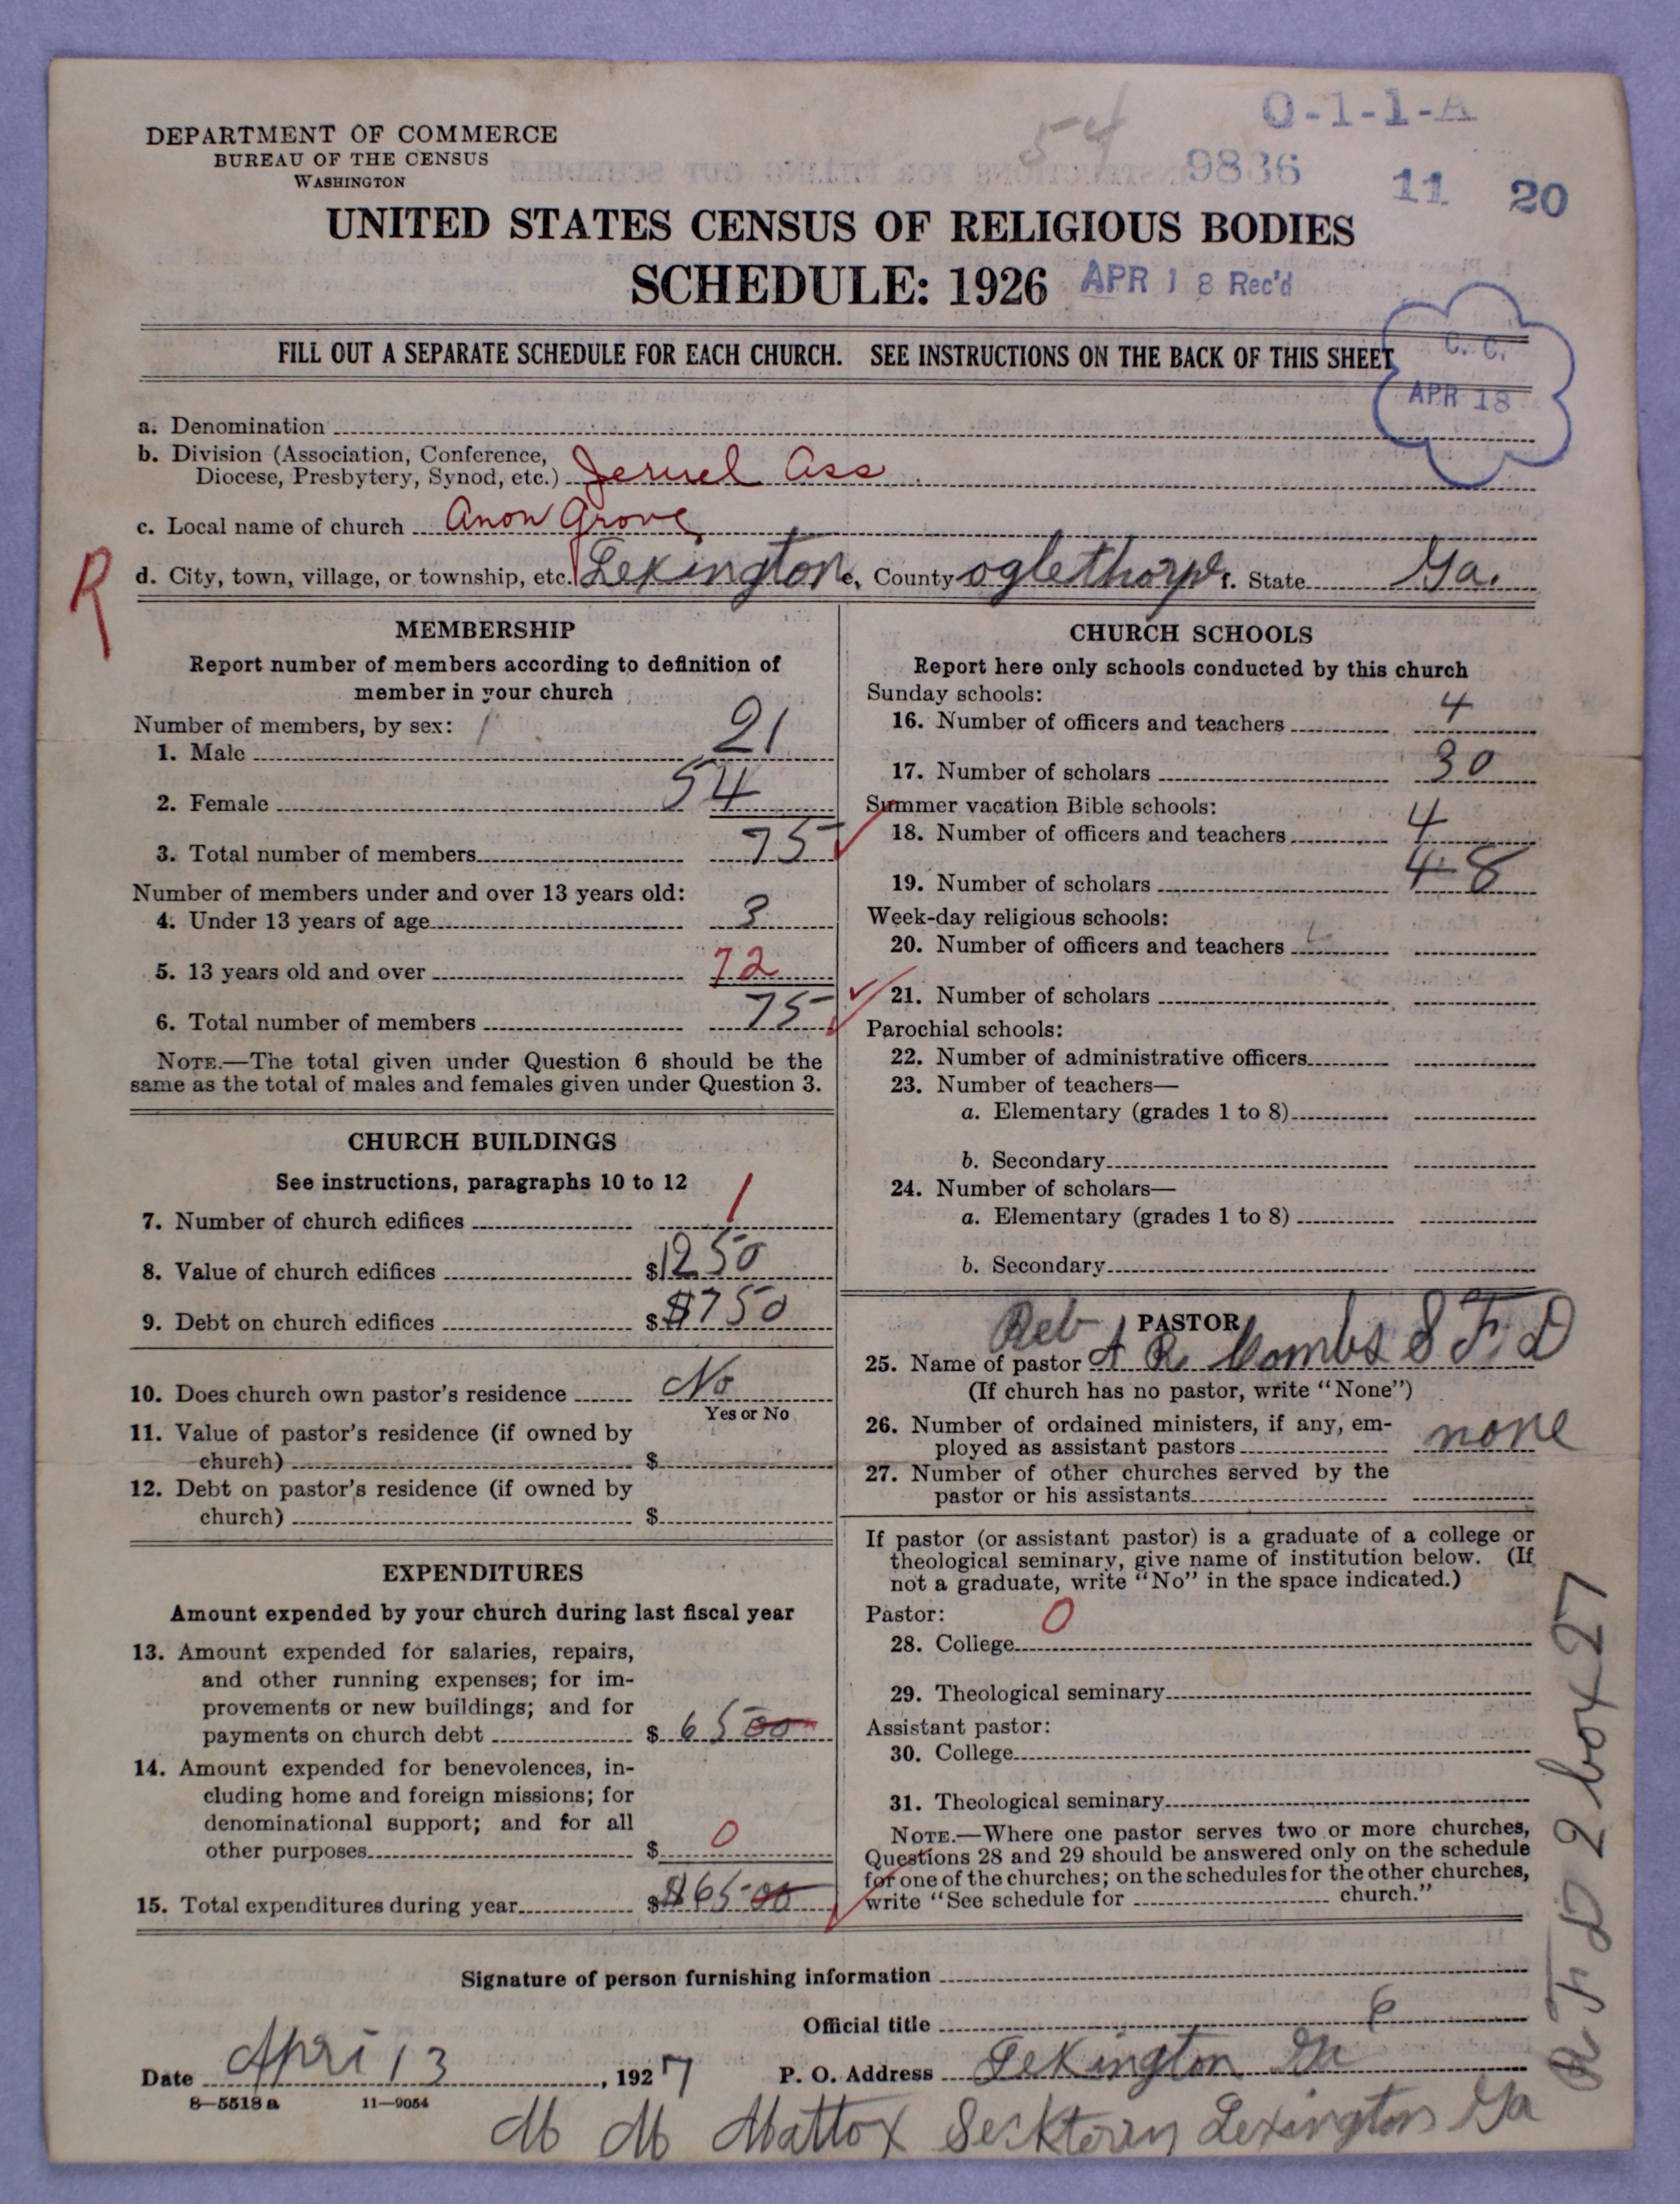 O-1-1-A
DEPARTMENT OF COMMERCE
BUREAU OF THE CENSUS
WASHINGTON
54
9836 11 20
UNITED STATES CENSUS OF RELIGIOUS BODIES
SCHEDULE: 1926 APR 18 Rec'd
FILL OUT A SEPARATE SCHEDULE FOR EACH CHURCH. SEE INSTRUCTIONS ON THE BACK OF THIS SHEET
C. C.
APR 18
a. Denomination
b. Division (Association, Conference,
Diocese, Presbytery, Synod, etc.) Jeruel Ass
c. Local name of church Anon Grove
R
d. City, town, village, or township, etc. Lexington e. County oglethorpe f. State Ga.
MEMBERSHIP
Report number of members according to definition of
member in your church
Number of members, by sex:
1. Male 21
2. Female 54
3. Total number of members 75
Number of members under and over 13 years old:
4. Under 13 years of age 3
5. 13 years old and over 72
6. Total number of members 75
NOTE.—The total given under Question 6 should be the
same as the total of males and females given under Question 3.
CHURCH BUILDINGS
See instructions, paragraphs 10 to 12
7. Number of church edifices 1
8. Value of church edifices $1250
9. Debt on church edifices $ $750
10. Does church own pastor's residence No
Yes or No
11. Value of pastor's residence (if owned by
church) $
12. Debt on pastor's residence (if owned by
church) $
EXPENDITURES
Amount expended by your church during last fiscal year
13. Amount expended for salaries, repairs,
and other running expenses; for im-
provements or new buildings; and for
payments on church debt $ 6500
14. Amount expended for benevolences, in-
cluding home and foreign missions; for
denominational support; and for all
other purposes $ 0
15. Total expenditures during year $ $6500
CHURCH SCHOOLS
Report here only schools conducted by this church
Sunday schools:
16. Number of officers and teachers 4
17. Number of scholars 30
Summer vacation Bible schools:
18. Number of officers and teachers 4
19. Number of scholars 48
Week-day religious schools:
20. Number of officers and teachers
21. Number of scholars
Parochial schools:
22. Number of administrative officers
23. Number of teachers—
a. Elementary (grades 1 to 8)
b. Secondary
24. Number of scholars—
a. Elementary (grades 1 to 8)
b. Secondary
PASTOR
25. Name of pastor Reb A R Combs S F. D
(If church has no pastor, write "None")
26. Number of ordained ministers, if any, em-
ployed as assistant pastors none
27. Number of other churches served by the
pastor or his assistants
If pastor (or assistant pastor) is a graduate of a college or
theological seminary, give name of institution below. (If
not a graduate, write "No" in the space indicated.)
Pastor: 0
28. College
29. Theological seminary
Assistant pastor:
30. College
31. Theological seminary
NOTE.—Where one pastor serves two or more churches,
Questions 28 and 29 should be answered only on the schedule
for one of the churches; on the schedules for the other churches,
write "See schedule for church."
R F D 2 box 27
Signature of person furnishing information
Official title
Date Apri 13, 1927 P. O. Address Lexington Ga
8—5518 a 11—9054
M M Mattox Secktery Lexington Ga